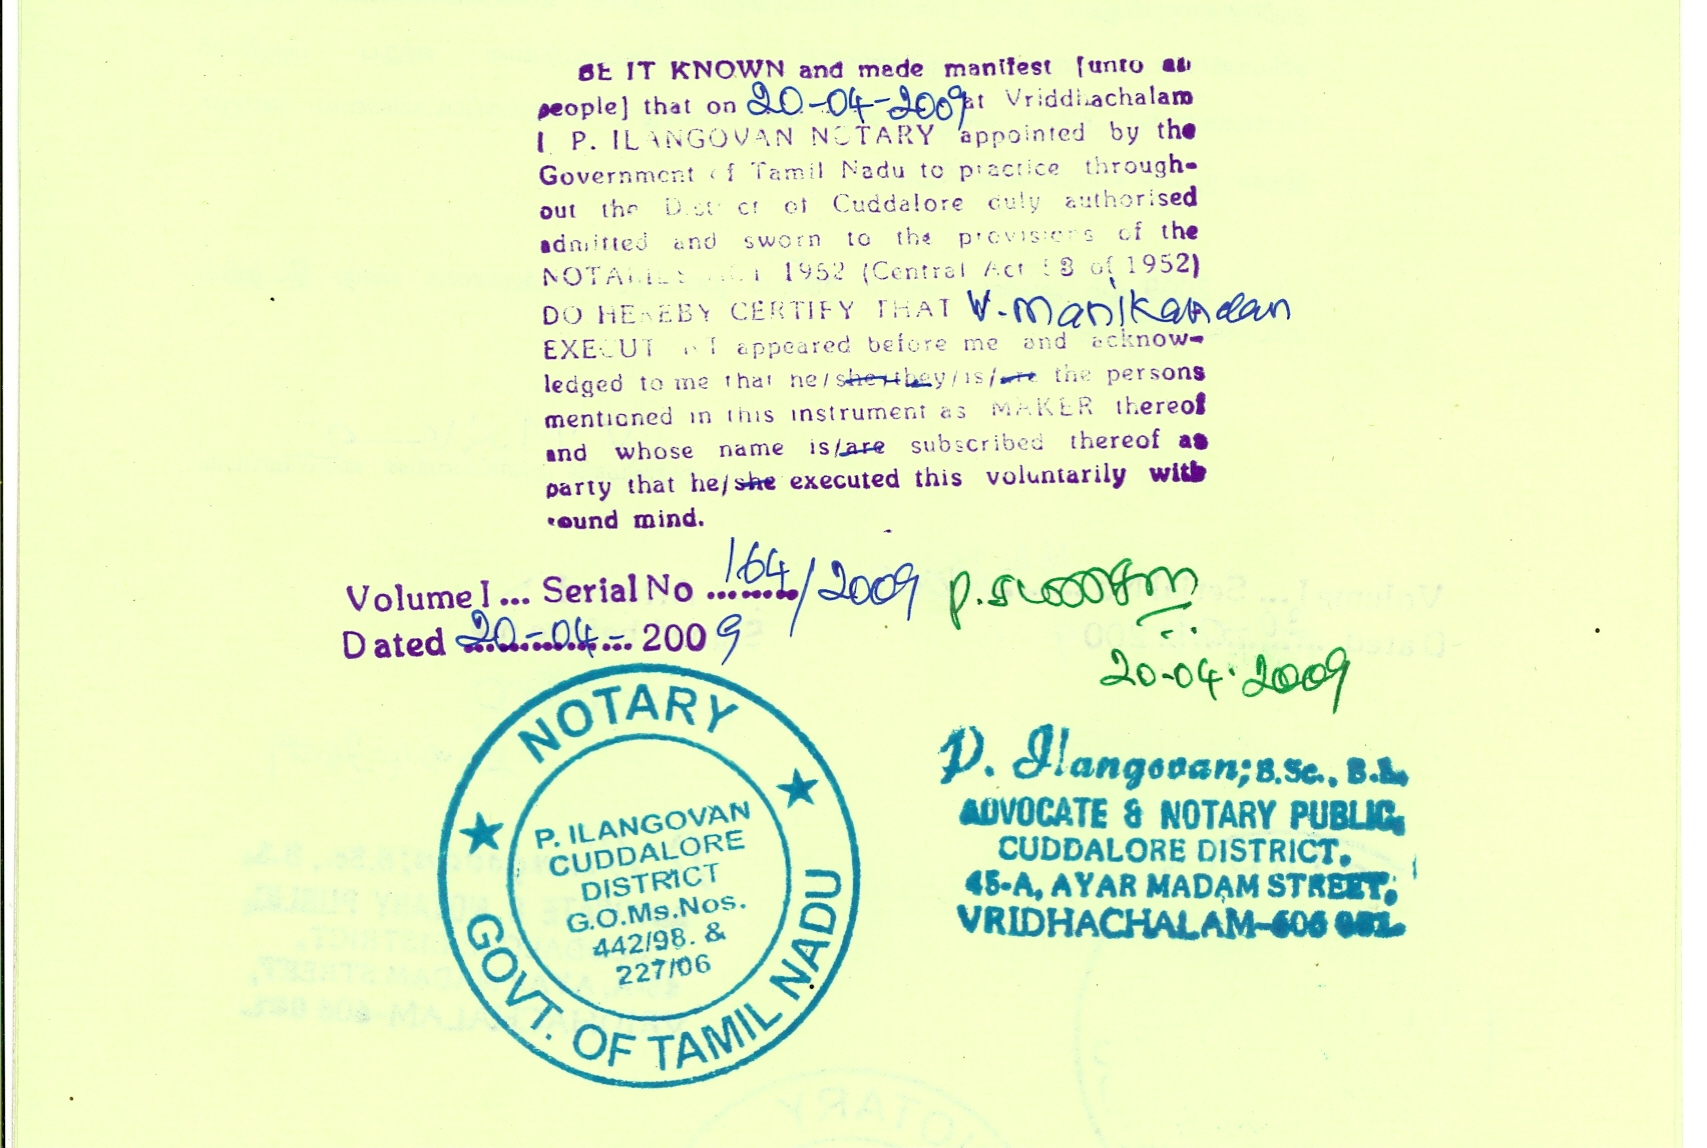 BE IT KNOWN and made manifest [unto all
people] that on 20-04-2009 at Vriddhachalam
I P. ILANGOVAN NOTARY appointed by the
Government of Tamil Nadu to practice through-
out the District of Cuddalore duly authorised
admitted and sworn to the provisions of the
NOTARIES ACT 1952 (Central Act 53 of 1952)
DO HEREBY CERTIFY THAT V. Manikandan
appeared before me and acknow-
ledged to me that he/she/they/is/are the persons
mentioned in this instrument as MAKER thereof
and whose name is/are subscribed thereof as
party that he/she executed this voluntarily with
sound mind.
Volume I ... Serial No 164/2009
Dated 20-04- 2009
20-04-2009
NOTARY
P. ILANGOVAN
CUDDALORE
DISTRICT
G.O.Ms.Nos.
442/98. &
227/06
GOVT. OF TAMIL NADU
P. Ilangovan; B.Sc., B.L.
ADVOCATE & NOTARY PUBLIC,
CUDDALORE DISTRICT.
45-A, AYAR MADAM STREET,
VRIDHACHALAM-606